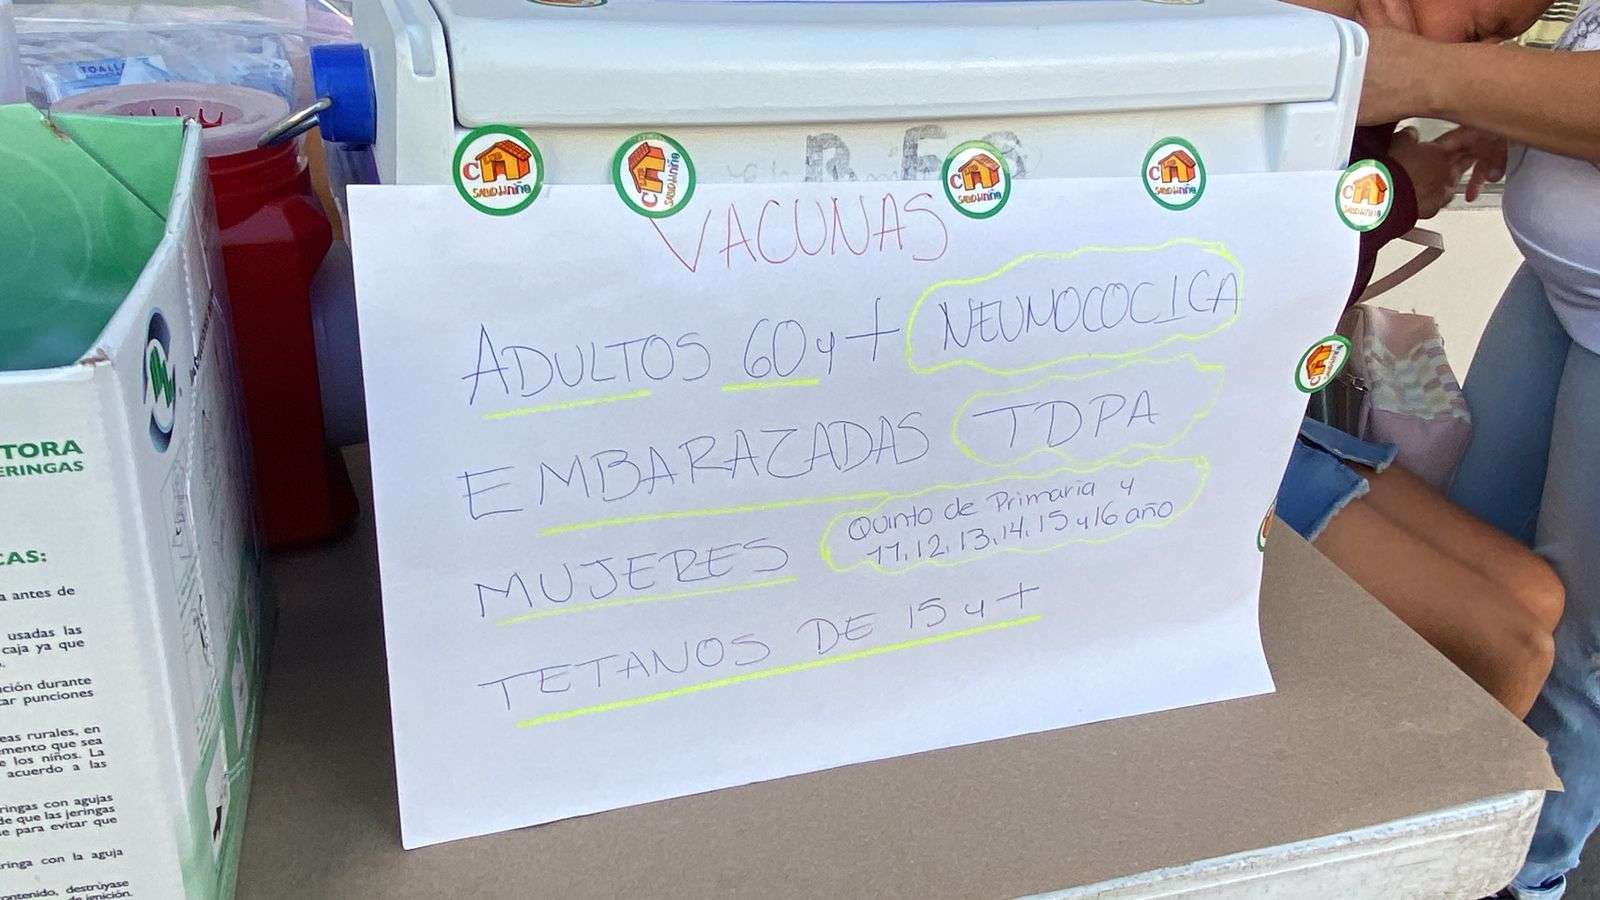 TOALL
VACUNAS
ADULTOS 60 y + NEUMOCOCICA
EMBARAZADAS TDPA
MUJERES Quinto de Primaria y
11, 12, 13, 14, 15 y 16 año
TETANOS DE 15 y +
TORA
ERINGAS
CAS:
a antes de
usadas las
caja ya que
ción durante
ar punciones
eas rurales, en
emento que sea
e los niños. La
acuerdo a las
ringas con agujas
de que las jeringas
e para evitar que
ringa con la aguja
ontenido, destrúyase
de ignición.